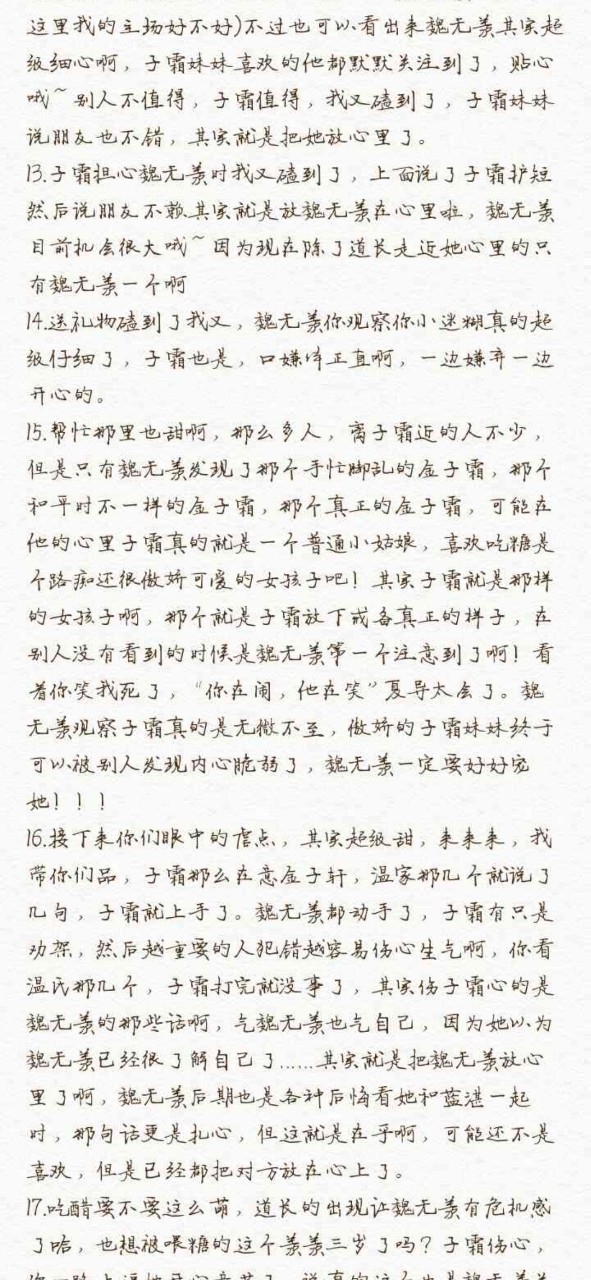 这里我的立场好不好)不过也可以看出来魏无羡其实超
级细心啊，子霜妹妹喜欢的他都默默关注到了，贴心
哦~别人不值得，子霜值得，我又磕到了，子霜妹妹
说朋友也不错，其实就是把她放心里了。
13.子霜担心魏无羡时我又磕到了，上面说了子霜护短
然后说朋友不赖其实就是放魏无羡在心里啦，魏无羡
目前机会很大哦~因为现在除了道长走近她心里的只
有魏无羡一个啊
14.送礼物磕到了我又，魏无羡你观察你小迷糊真的超
级仔细了，子霜也是，口嫌体正直啊，一边嫌弃一边
开心的。
15.帮忙那里也甜啊，那么多人，离子霜近的人不少，
但是只有魏无羡发现了那个手忙脚乱的金子霜，那个
和平时不一样的金子霜，那个真正的金子霜，可能在
他的心里子霜真的就是一个普通小姑娘，喜欢吃糖是
个路痴还很傲娇可爱的女孩子吧！其实子霜就是那样
的女孩子啊，那个就是子霜放下戒备真正的样子，在
别人没有看到的时候是魏无羡第一个注意到了啊！看
着你笑我死了，“你在闹，他在笑”夏导太会了。魏
无羡观察子霜真的是无微不至，傲娇的子霜妹妹终于
可以被别人发现内心脆弱了，魏无羡一定要好好宠
她！！！
16.接下来你们眼中的虐点，其实超级甜，来来来，我
带你们品，子霜那么在意金子轩，温家那几个就说了
几句，子霜就上手了。魏无羡都动手了，子霜有只是
劝架，然后越重要的人犯错越容易伤心生气啊，你看
温氏那几个，子霜打完就没事了，其实伤子霜心的是
魏无羡的那些话啊，气魏无羡也气自己，因为她以为
魏无羡已经很了解自己了……其实就是把魏无羡放心
里了啊，魏无羡后期也是各种后悔看她和蓝湛一起
时，那句话更是扎心，但这就是在乎啊，可能还不是
喜欢，但是已经都把对方放在心上了。
17.吃醋要不要这么萌，道长的出现让魏无羡有危机感
了哈，也想被喂糖的这个羡羡三岁了吗？子霜伤心，